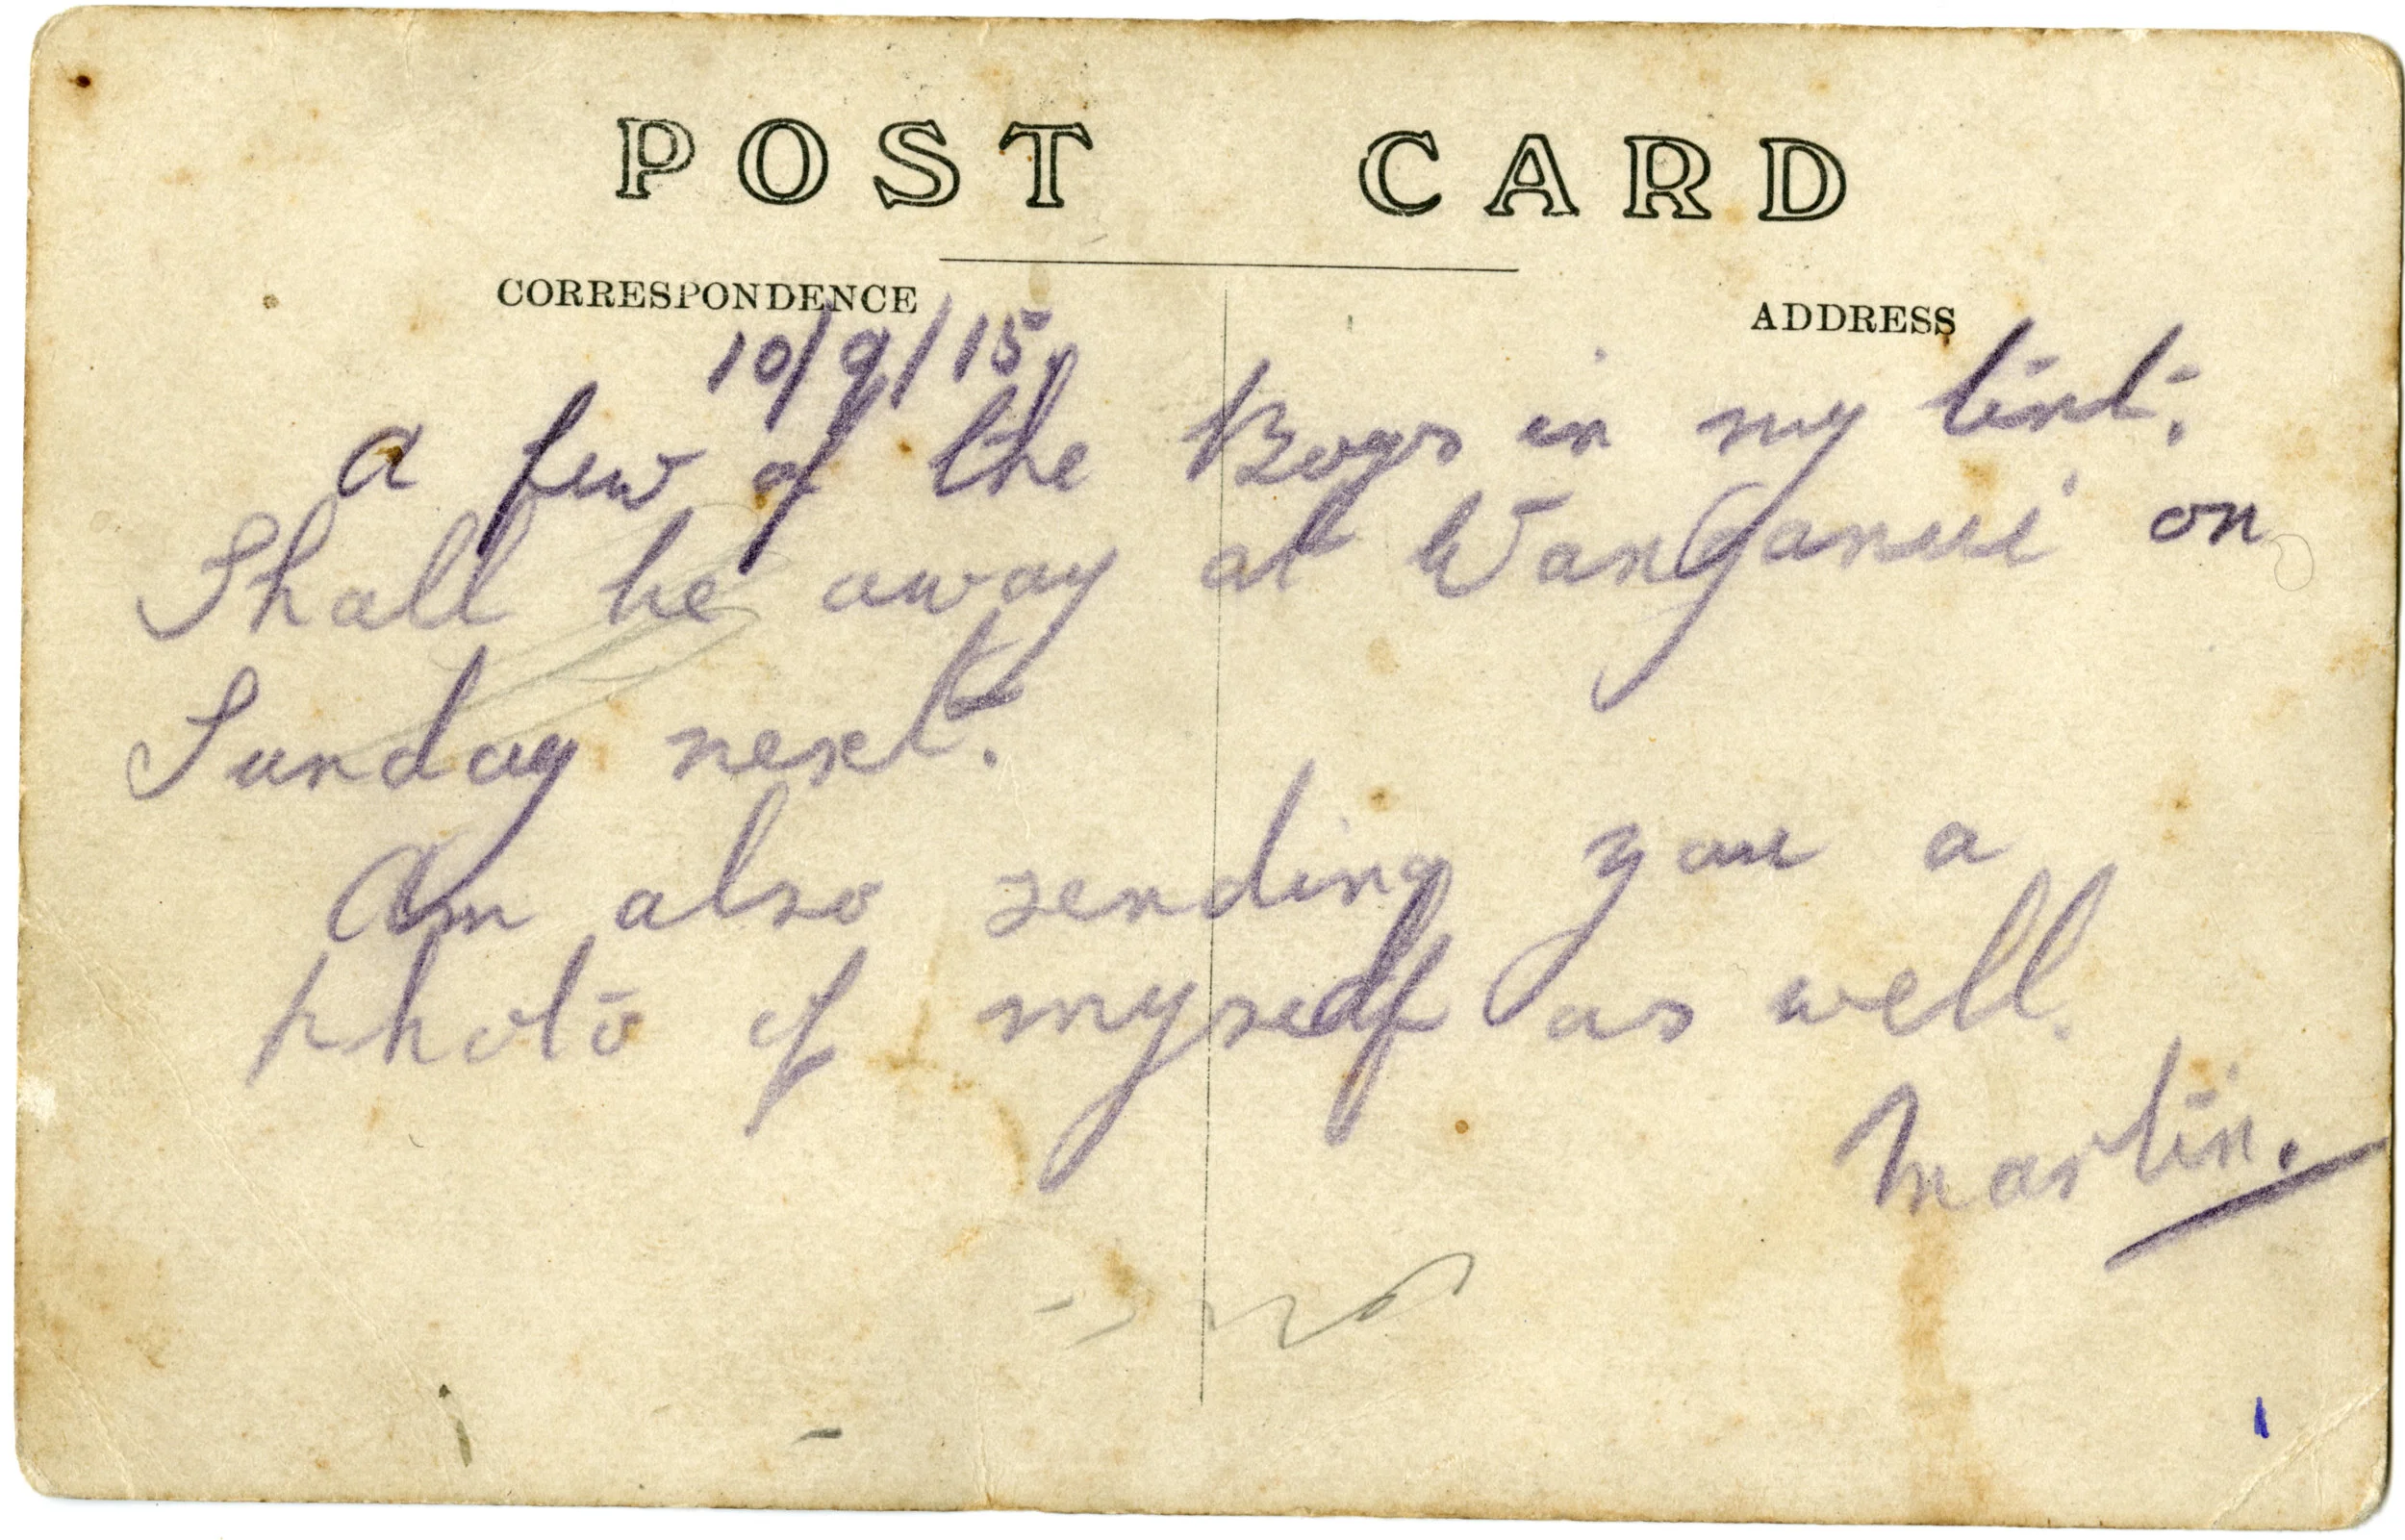 POST CARD
CORRESPONDENCE ADDRESS
10/9/15.
A few of the Boys in my tent.
Shall be away at Wanganui on
Sunday next.
Am also sending you a
photo of myself as well.
Martin.